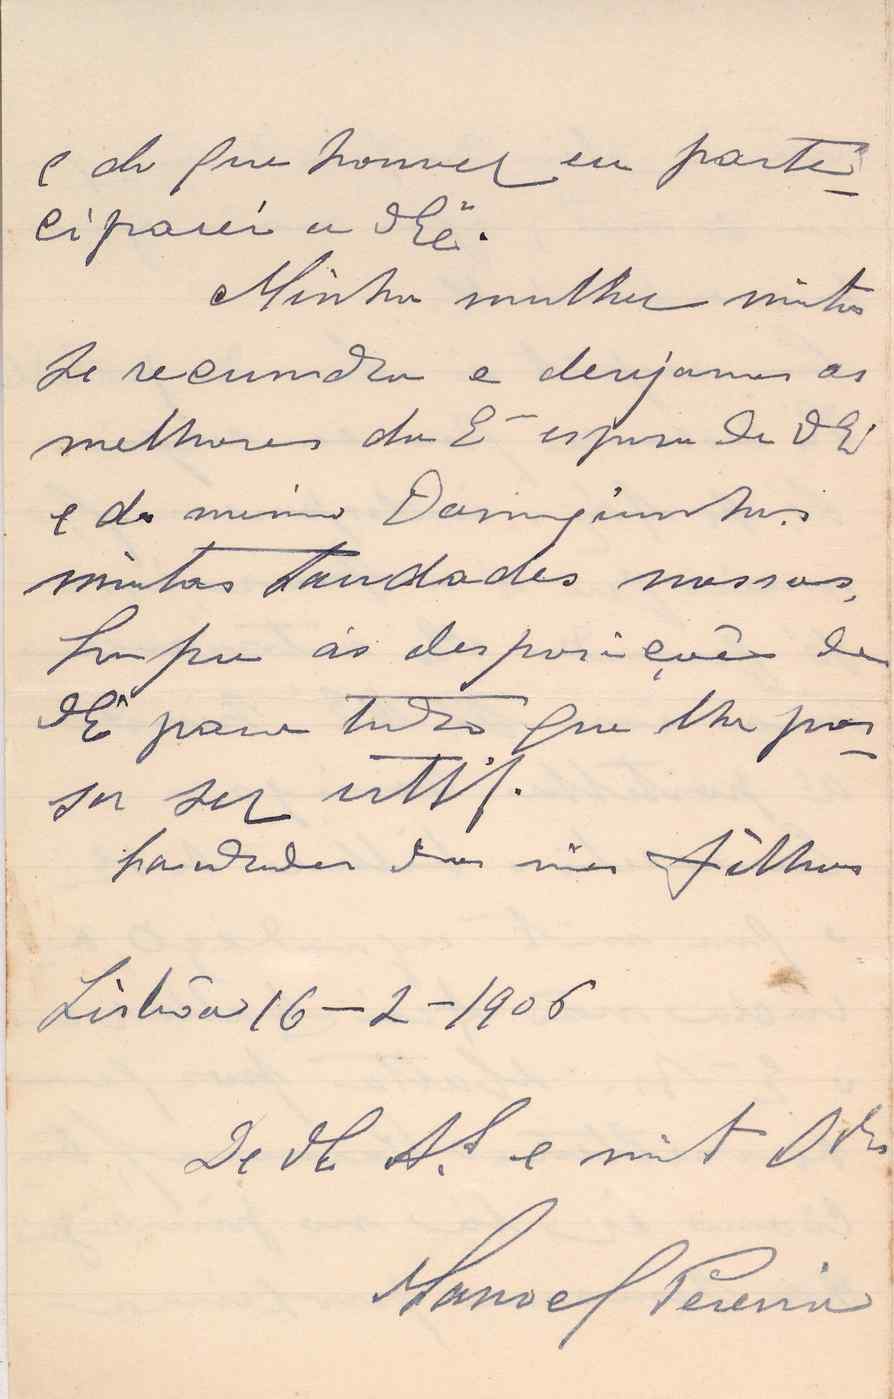 e do que houver eu parte-
ciparei a VEª.
Minha mulher muito
se recumenda e desejamos as
melhoras da Eª esposa de VEª
e do menino Dominguinhos
muitas saudades nossas,
Sempre ás desposições de
VEª para tudo que lhe pos-
sa ser util.
Saudades dos meus filhos
Lisbôa 16-2-1906
De VE A.º e mt Obr
Manoel Pereira